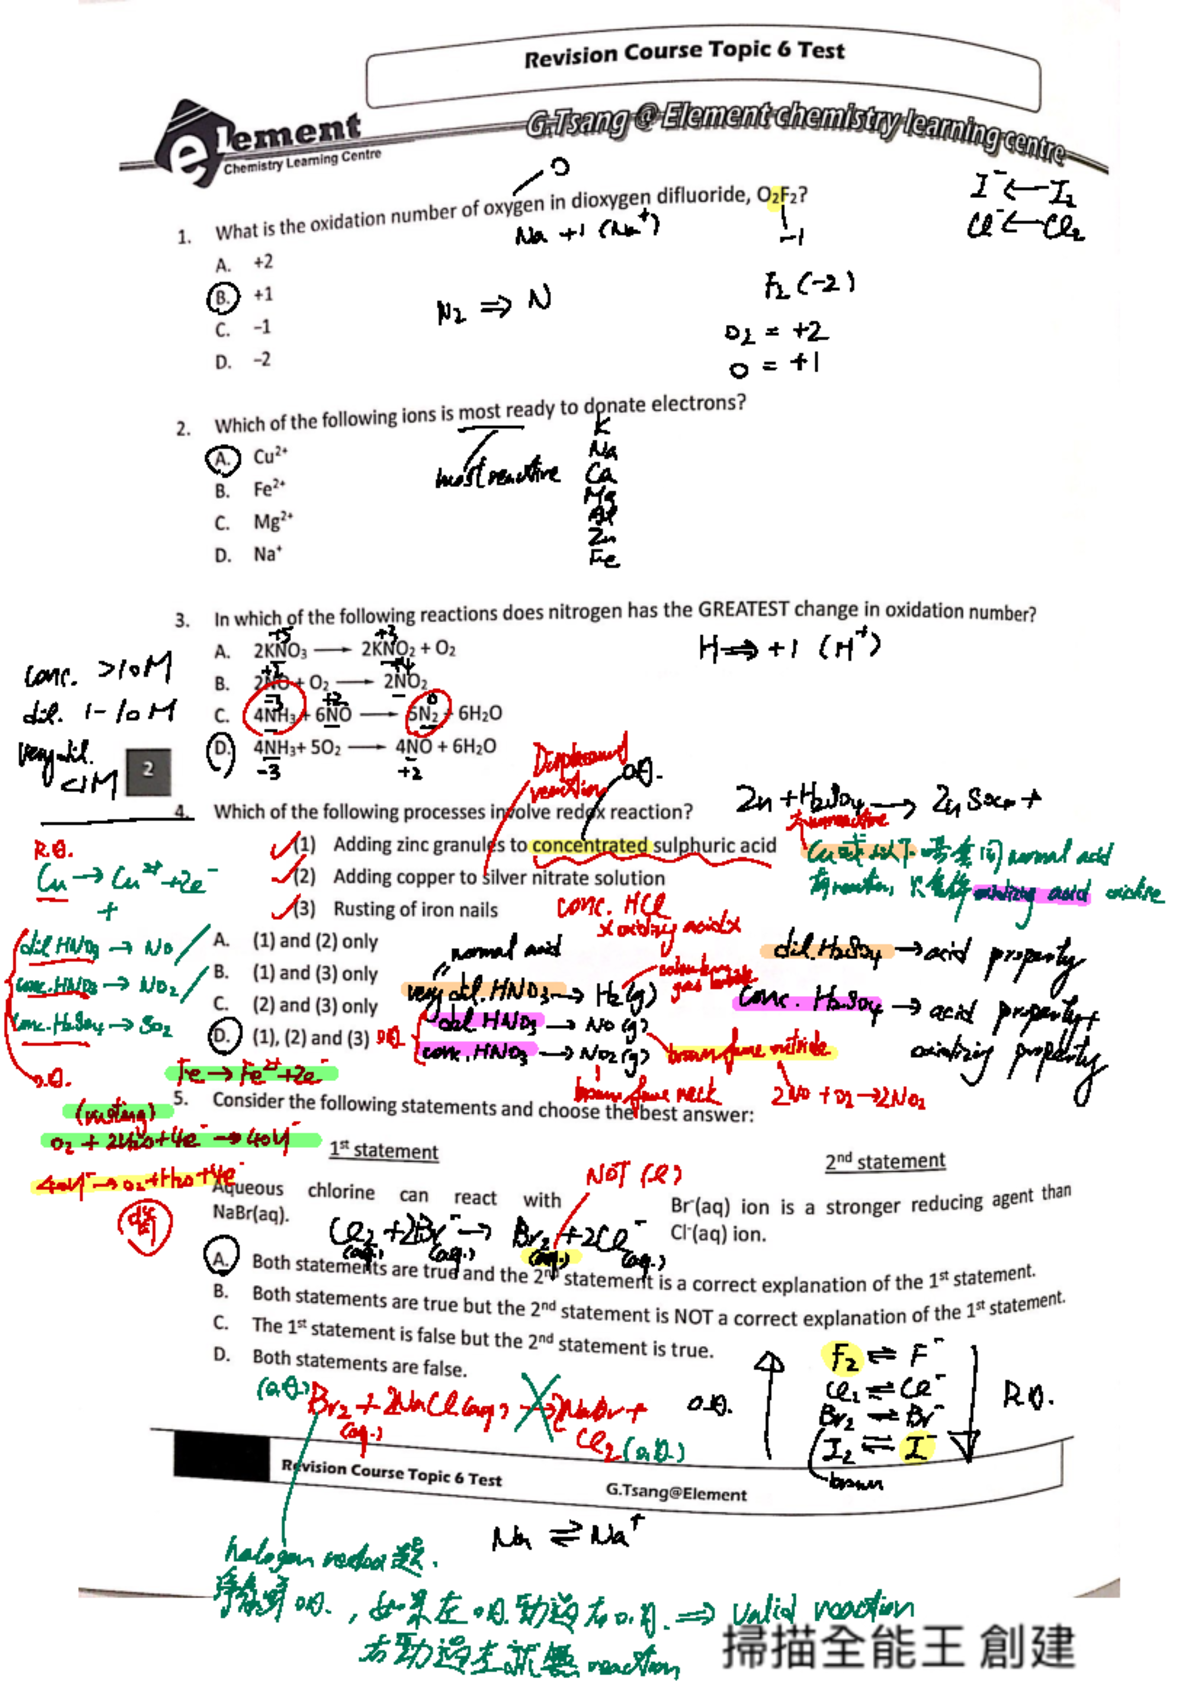 Revision Course Topic 6 Test
element
Chemistry Learning Centre
G.Tsang @ Element chemistry learning centre
O
I⁻ ← I₂
Cl⁻ ← Cl₂
1. What is the oxidation number of oxygen in dioxygen difluoride, O₂F₂?
Na +1 (Na⁺)
-1
A. +2
B. +1
C. −1
D. −2
N₂ ⇒ N
F₂ (-2)
O₂ = +2
O = +1
2. Which of the following ions is most ready to donate electrons?
A. Cu²⁺
B. Fe²⁺
C. Mg²⁺
D. Na⁺
most reactive
K
Na
Ca
Mg
Al
Zn
Fe
3. In which of the following reactions does nitrogen has the GREATEST change in oxidation number?
+5 +3
A. 2KNO₃ → 2KNO₂ + O₂
+2 +4
B. 2NO + O₂ → 2NO₂
-3 +2 0
C. 4NH₃ + 6NO → 5N₂ + 6H₂O
D. 4NH₃ + 5O₂ → 4NO + 6H₂O
-3 +2
H ⇒ +1 (H⁺)
conc. >10M
dil. 1-10M
very dil.
<1M
2
Displacement
reaction
O.A.
4. Which of the following processes involve redox reaction?
(1) Adding zinc granules to concentrated sulphuric acid
(2) Adding copper to silver nitrate solution
(3) Rusting of iron nails
A. (1) and (2) only
B. (1) and (3) only
C. (2) and (3) only
D. (1), (2) and (3)
Zn + H₂SO₄ → ZnSO₄ +
normal acid
oxidizing acid
R.A.
Cu → Cu²⁺ + 2e⁻
+
dil HNO₃ → NO
conc. HNO₃ → NO₂
conc. H₂SO₄ → SO₂
O.A.
conc. HCl
x oxidizing acid x
normal acid
very dil. HNO₃ → H₂(g)
colourless
dil HNO₃ → NO(g)
conc. HNO₃ → NO₂(g)
2NO + O₂ → 2NO₂
dil. H₂SO₄ → acid property
conc. H₂SO₄ → acid property +
oxidizing property
Fe → Fe²⁺ + 2e⁻
(rusting)
O₂ + 2H₂O + 4e⁻ → 4OH⁻
4OH⁻ → O₂ + H₂O + 4e⁻
5. Consider the following statements and choose the best answer:
1st statement
2nd statement
NOT (l)
Aqueous chlorine can react with
NaBr(aq).
Br⁻(aq) ion is a stronger reducing agent than
Cl⁻(aq) ion.
Cl₂ + 2Br⁻ → Br₂ + 2Cl⁻
(aq.) (aq.) (aq.) (aq.)
A. Both statements are true and the 2nd statement is a correct explanation of the 1st statement.
B. Both statements are true but the 2nd statement is NOT a correct explanation of the 1st statement.
C. The 1st statement is false but the 2nd statement is true.
D. Both statements are false.
(O.A.) Br₂ + 2NaCl(aq) → 2NaBr +
(aq.) Cl₂ (O.A.)
O.A.
F₂ ⇌ F⁻
Cl₂ ⇌ Cl⁻
Br₂ ⇌ Br⁻
I₂ ⇌ I⁻
brown
R.A.
Revision Course Topic 6 Test
G.Tsang@Element
Na ⇌ Na⁺
halogen redox 題.
如果左O.A.勁過右O.A. ⇒ valid reaction
右勁過左就無 reaction
掃描全能王 創建